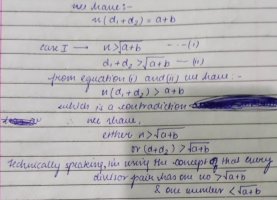 we have:-
n(d₁+d₂) = a+b
case I → n>√a+b --(i)
d₁+d₂>√a+b --(ii)
from equation (i) and (ii) we have:-
n(d₁+d₂) > a+b
which is a contradiction
∴ we have,
either n>√a+b
or (d₁+d₂) >√a+b
Technically speaking, I'm using the concept of that every
divisor pair has one no >√a+b
& one number <√a+b